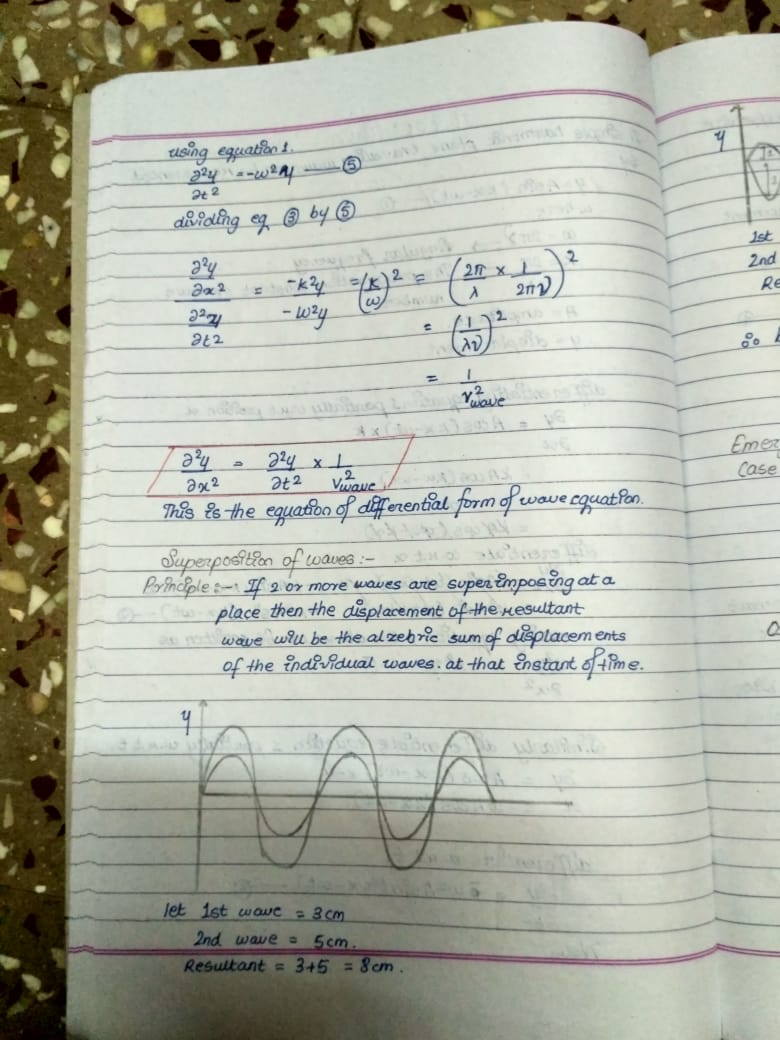 using equation 1.
∂²y/∂t² = -ω²y —— ⑤
dividing eq ③ by ⑤
(∂²y/∂x²)/(∂²y/∂t²) = -k²y/-ω²y = (k/ω)² = (2π/λ × 1/2πν)²
= (1/λν)²
= 1/v²wave
∂²y/∂x² = ∂²y/∂t² × 1/v²wave
This is the equation of differential form of wave equation.
Superposition of waves:-
Principle:- If 2 or more waves are superimposing at a
place then the displacement of the resultant
wave will be the alzebric sum of displacements
of the individual waves. at that instant of time.
y
let 1st wave = 3cm
2nd wave = 5cm.
Resultant = 3+5 = 8cm.
y
1st
2nd
Re
Emer
Case